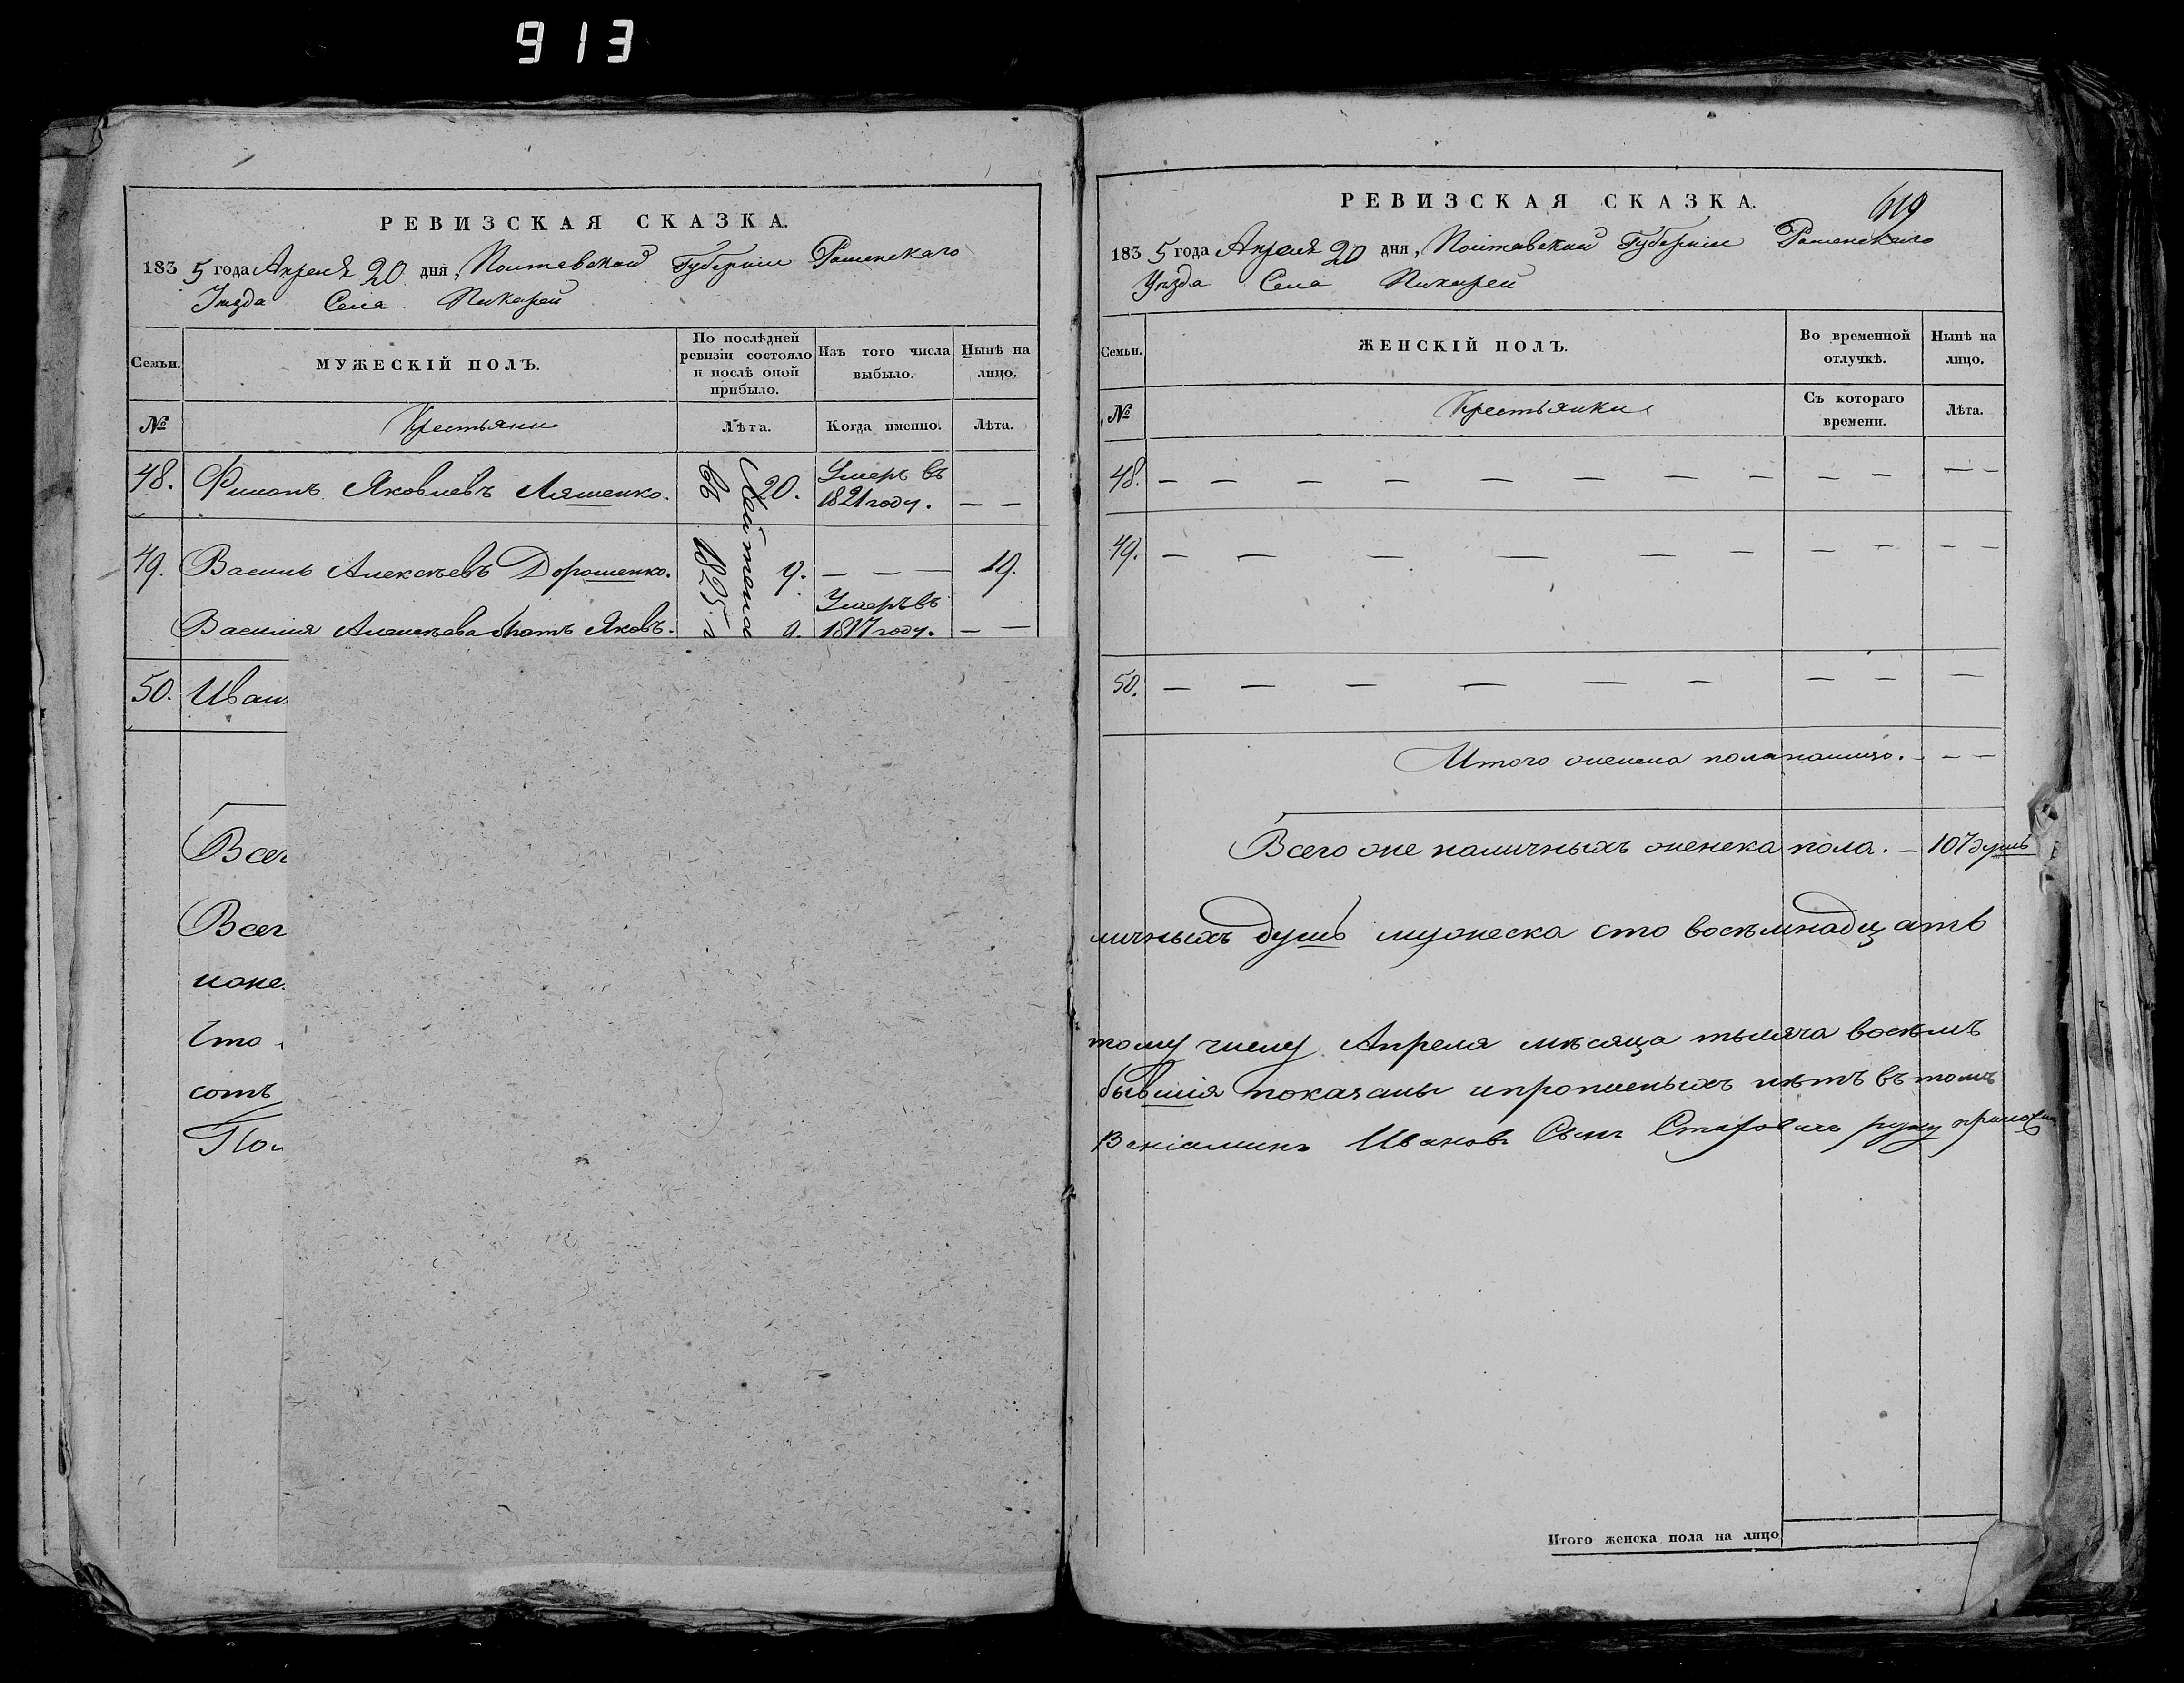 913
РЕВИЗСКАЯ СКАЗКА.
1835 года Апреля 20 дня, Полтавской Губернии Роменскаго
Уезда Села Пикарей
Семьи.
МУЖЕСКІЙ ПОЛЪ.
По послѣдней ревизіи состояло и послѣ оной прибыло.
Изъ того числа выбыло.
Нынѣ на лицо.
№
Крестьяни
Лѣта.
Когда именно.
Лѣта.
48. Филопъ Яковлевъ Ляшенко. 20. Умеръ въ 1821 году. — —
49. Василь Алексѣевъ Дорошенко. 9. — — — 19.
Василия Алексѣева братъ Яковъ. 0. Умеръ въ 1817 году. — —
въ 1825
50. Иван
Всег
Всег
Что
сотъ
РЕВИЗСКАЯ СКАЗКА.
619
1835 года Апреля 20 дня, Полтавской Губернии Роменскаго
Уезда Села Пикарей
Семьи.
ЖЕНСКІЙ ПОЛЪ.
Во временной отлучкѣ.
Нынѣ на лицо.
№
Крестьянки
Съ котораго времени.
Лѣта.
48. — — — — — — — — — — — —
49. — — — — — — — — — —
50. — — — — — — — — —
Итого женска пола налицо. — — —
Всего же наличныхъ женска пола. — 107 душъ
личныхъ душъ мужеска сто восѣмнадцать
тому числу Апреля мѣсяца тысяча восѣмъ
бывшия показаны и прописныхъ нѣтъ въ томъ
Вениаминъ Ивановъ Сынъ руку приложил
Итого женска пола на лицо